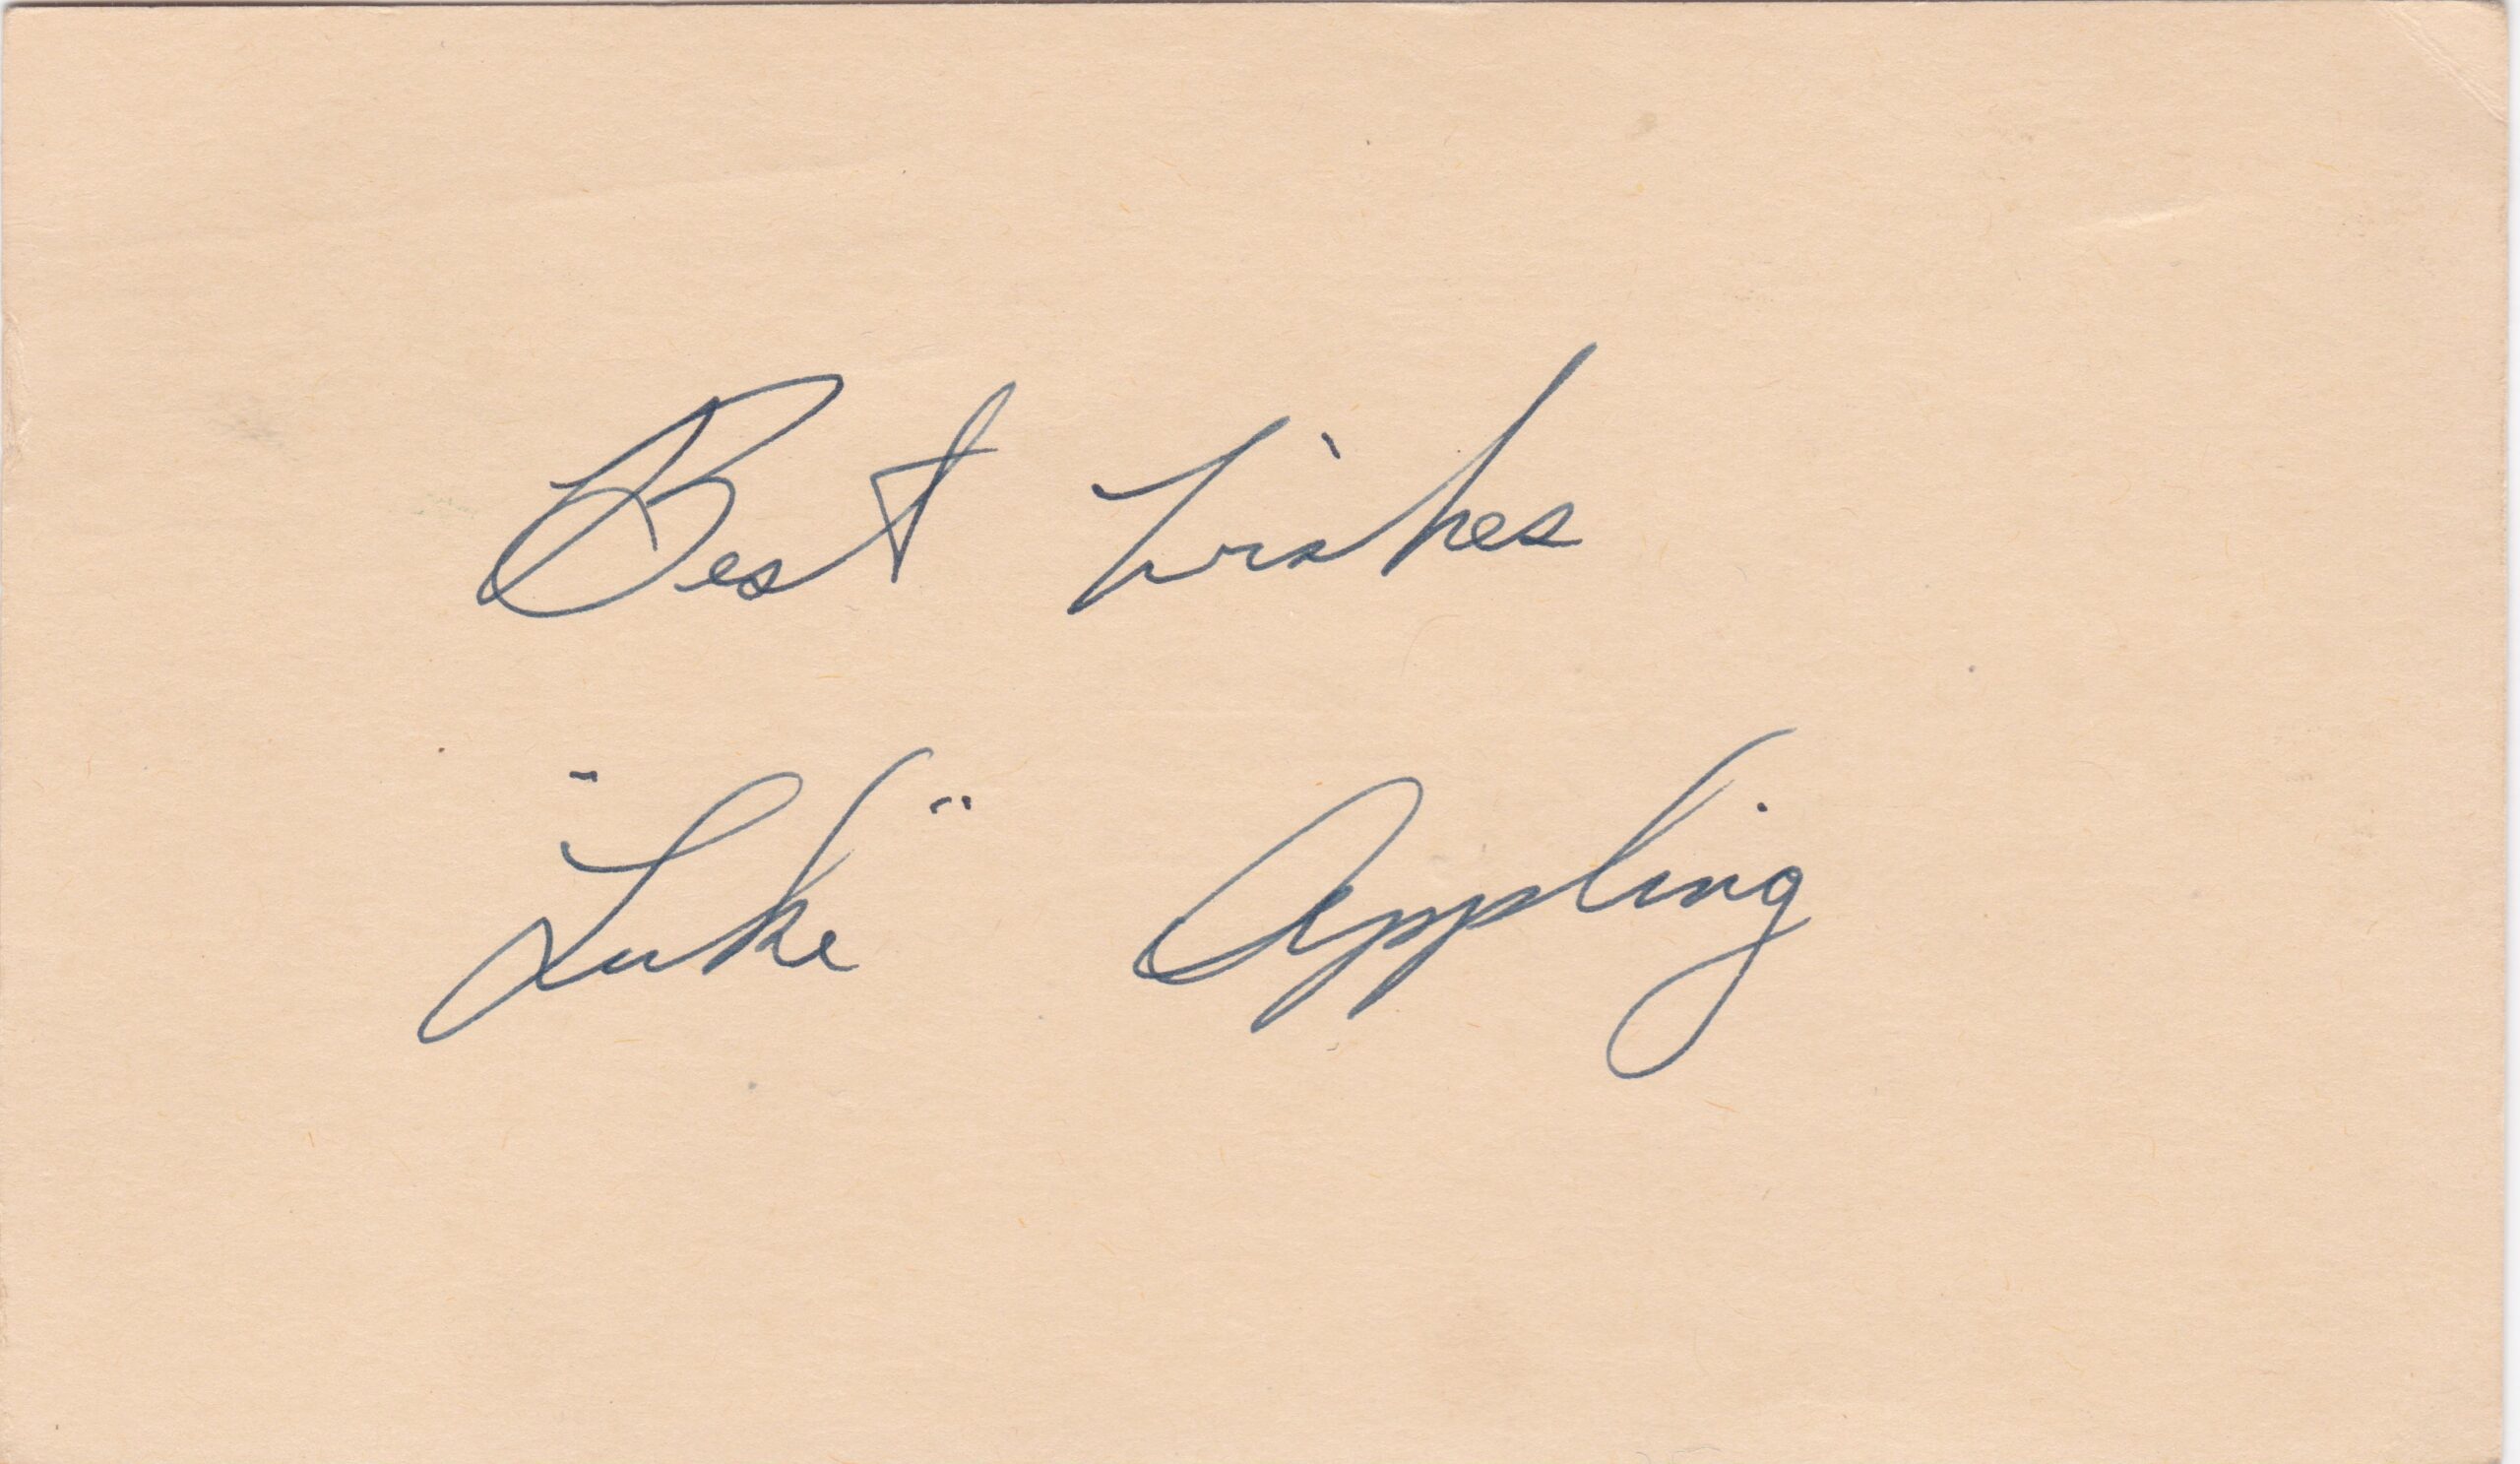 Best Wishes
"Luke" Appling